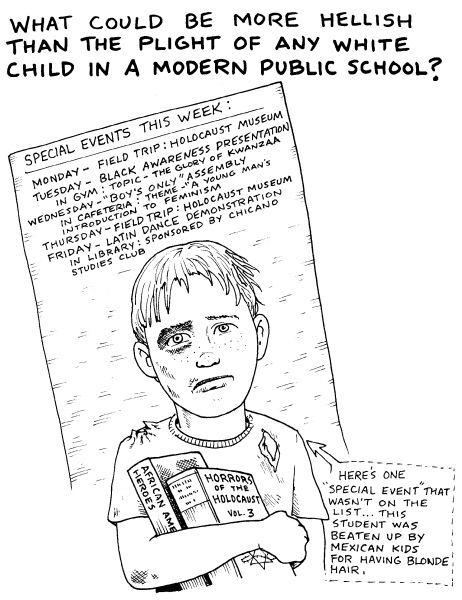 WHAT COULD BE MORE HELLISH
THAN THE PLIGHT OF ANY WHITE
CHILD IN A MODERN PUBLIC SCHOOL?
SPECIAL EVENTS THIS WEEK:
MONDAY – FIELD TRIP: HOLOCAUST MUSEUM
TUESDAY – BLACK AWARENESS PRESENTATION
IN GYM: TOPIC – THE GLORY OF KWANZAA
WEDNESDAY – "BOYS ONLY" ASSEMBLY
IN CAFETERIA: THEME – "A YOUNG MAN'S
INTRODUCTION TO FEMINISM
THURSDAY – FIELD TRIP: HOLOCAUST MUSEUM
FRIDAY – LATIN DANCE DEMONSTRATION
IN LIBRARY: SPONSORED BY CHICANO
STUDIES CLUB
AFRICAN AME
HEROES
HORRORS
OF THE
HOLOCAUST
VOL. 3
HERE'S ONE
"SPECIAL EVENT" THAT
WASN'T ON THE
LIST... THIS
STUDENT WAS
BEATEN UP BY
MEXICAN KIDS
FOR HAVING BLONDE
HAIR.